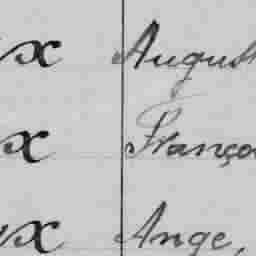 x August
x Franço
x Ange,